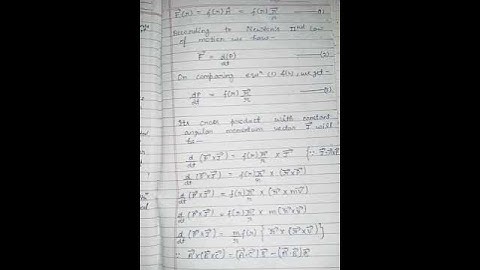 F⃗(r) = f(r) r̂ = f(r) r⃗/r —(1)
According to Newton's IInd Law
of motion we have -
F⃗ = d(P)/dt —(2)
On comparing eqnⁿ (1) & (2), we get -
dP/dt = f(r) r⃗/r
Its cross product with constant
angular momentum vector J⃗ will
be -
d/dt (P⃗×J⃗) = f(r) r⃗/r × J⃗
d/dt (P⃗×J⃗) = f(r) r⃗/r × (r⃗×P⃗)
d/dt (P⃗×J⃗) = f(r) r⃗/r × (r⃗×mv⃗)
d/dt (P⃗×J⃗) = f(r) r⃗/r × m(r⃗×v⃗)
d/dt (P⃗×J⃗) = m/r f(r) { r⃗ × (r⃗×v⃗) }
∵ A⃗×(B⃗×C⃗) = (A⃗·C⃗)B⃗ − (A⃗·B⃗)C⃗